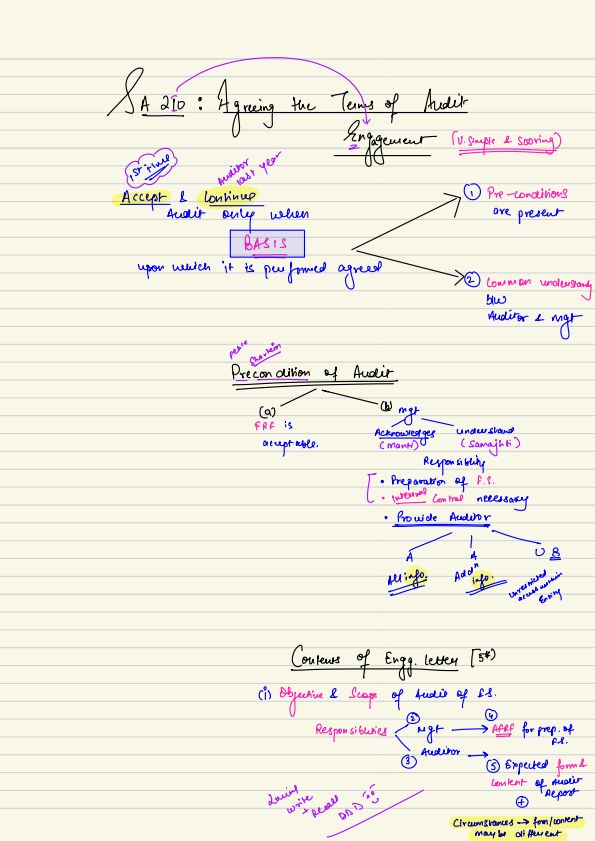 SA 210 : Agreeing the Terms of Audit
Engagement
(V. Simple & Scoring)
1st time
Auditor last year
Accept & Continue
Audit only when
BASIS
upon which it is performed agreed
① Pre-conditions
are present
② Common understandg
b/w
Auditor & mgt
Precondition of Audit
(a)
FRF is
acceptable.
(b) mgt
Acknowledges
(Manti)
understand
(Samajhti)
Responsiblity
• Preparation of F.S.
• Internal Control necessary
• Provide Auditor
A A U R
All info.
Addn info.
Unrestricted
access within
Entity
Contents of Engg. letter [5*)
(i) Objective & Scope of Audit of F.S.
Responsiblities
② Mgt
③ Auditor
④
AFRF for prep. of
F.S.
⑤ Expected form &
Content of Audit
Report
+
Circumstances → form/content
may be different
write
+ Recall